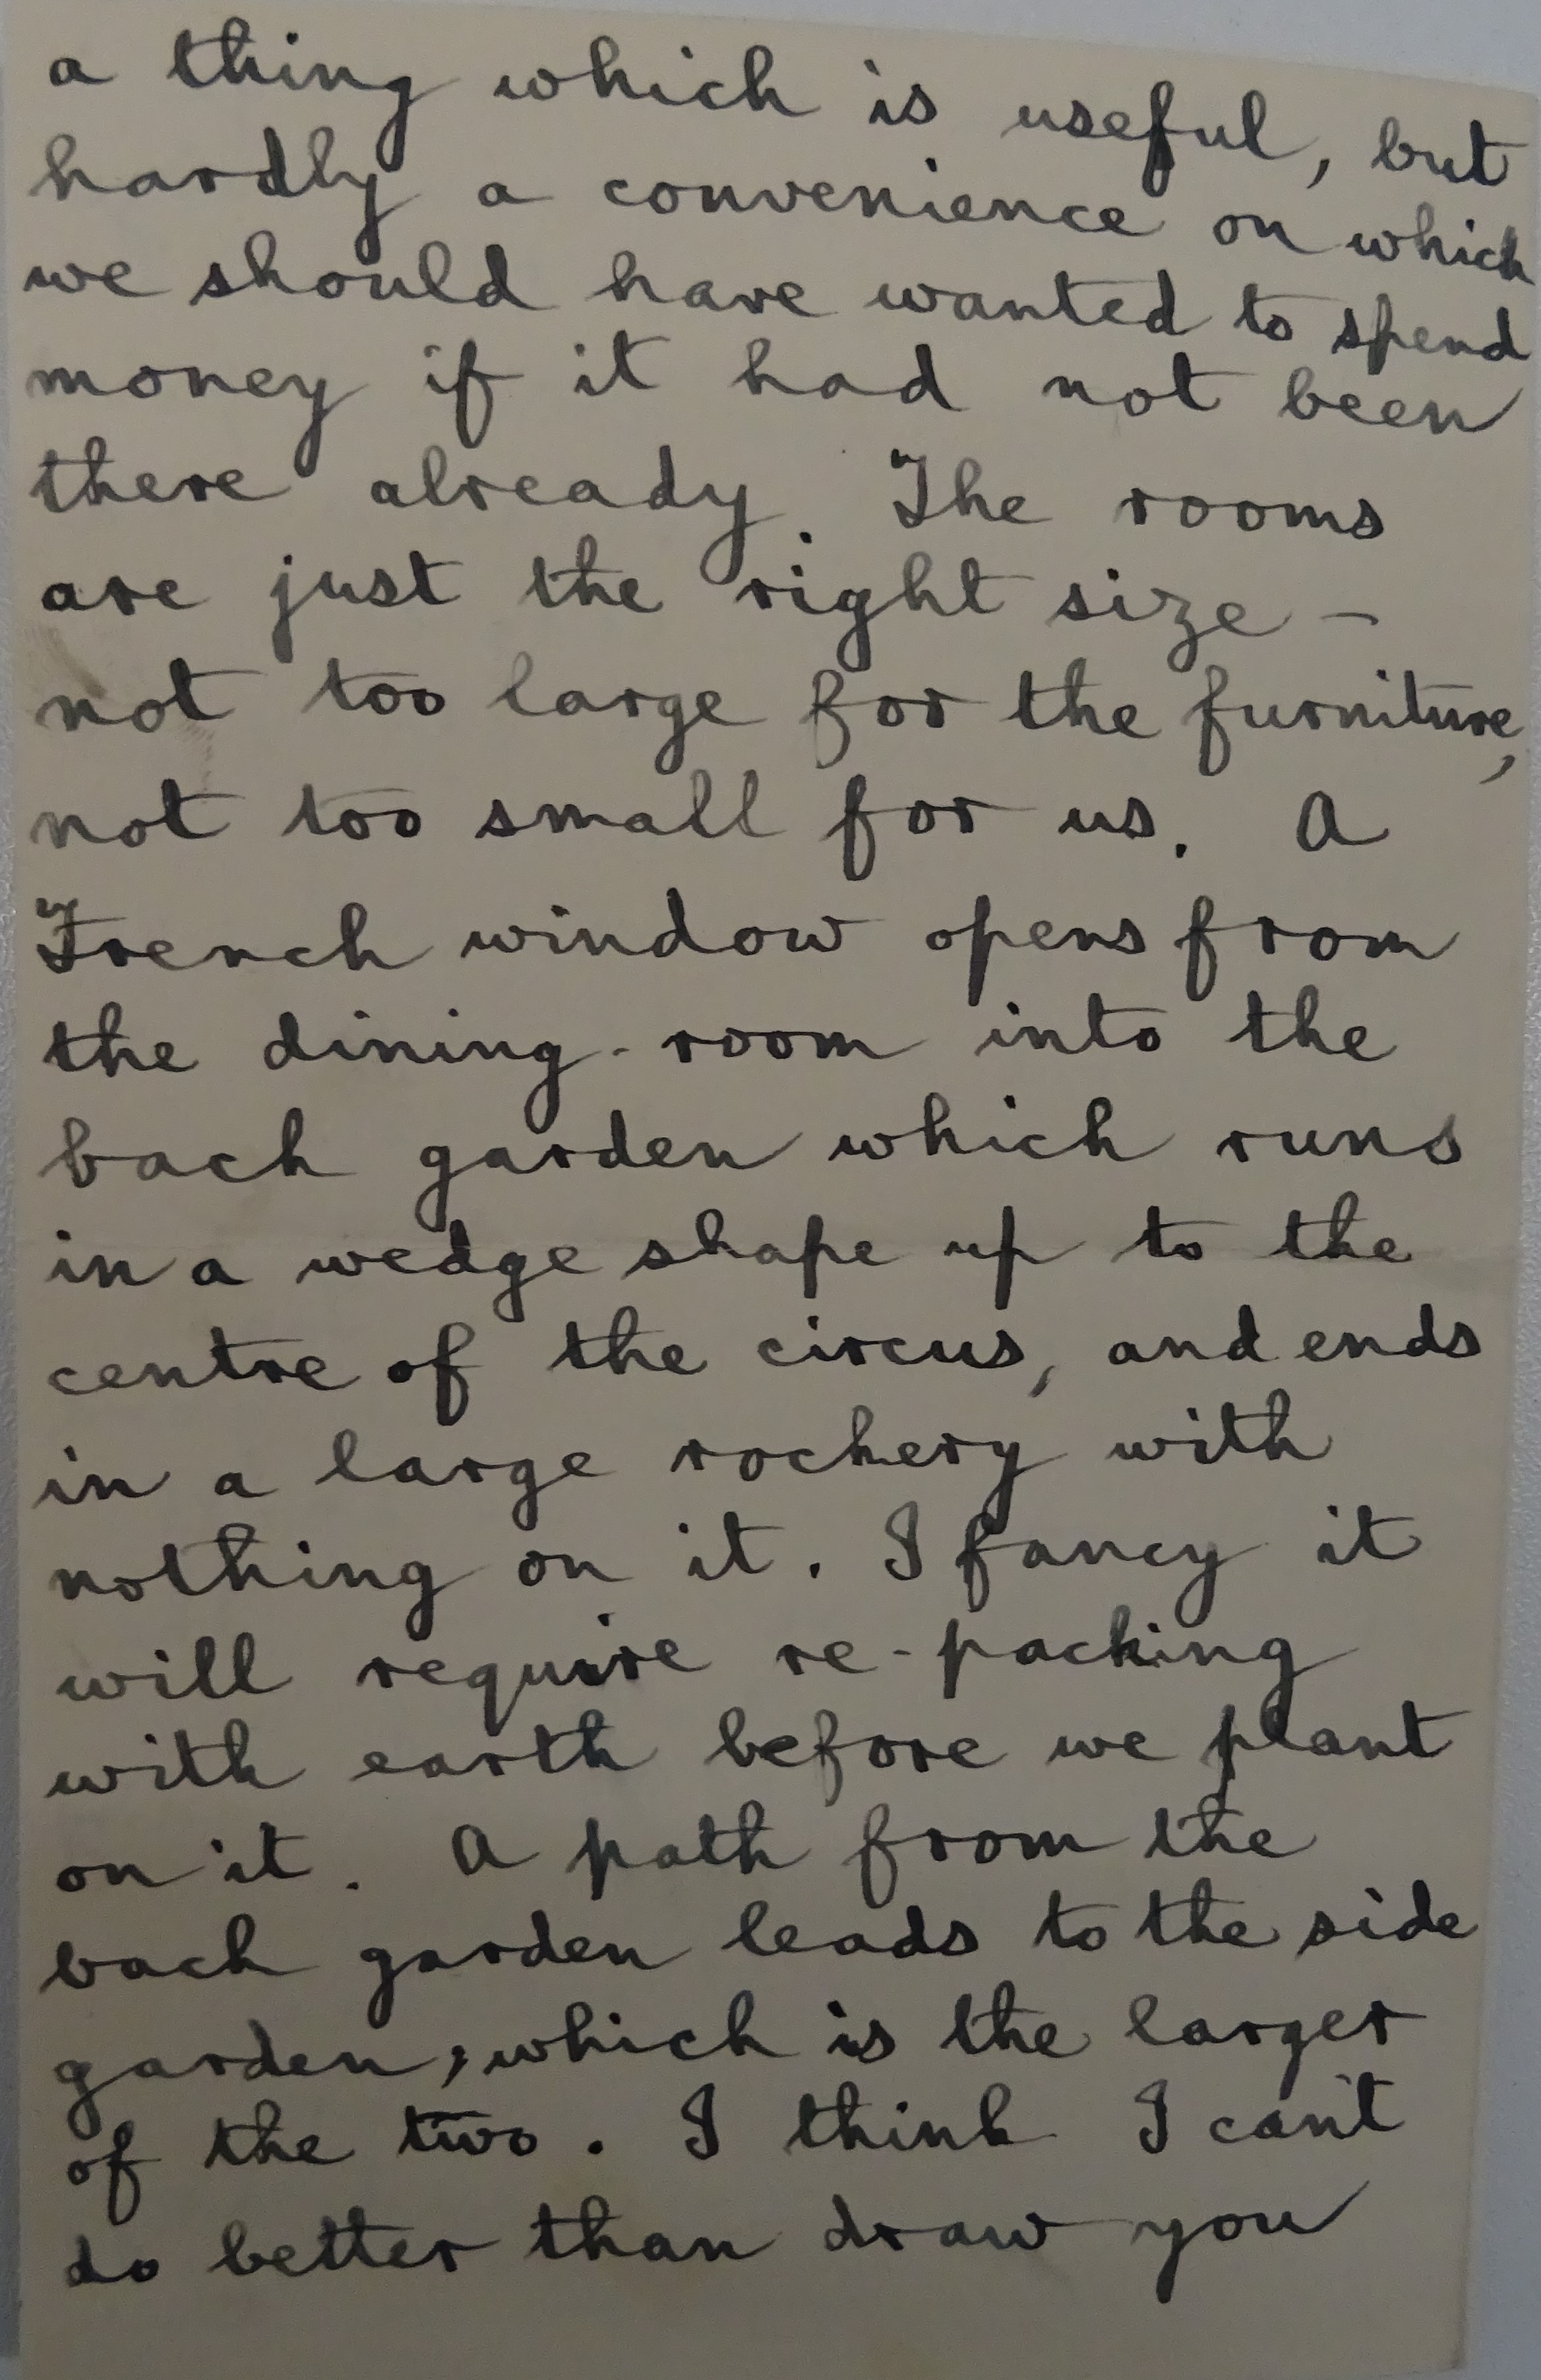 a thing which is useful, but
hardly a convenience on which
we should have wanted to spend
money if it had not been
there already. The rooms
are just the right size –
not too large for the furniture,
not too small for us. A
French window opens from
the dining-room into the
back garden which runs
in a wedge shape up to the
centre of the circus, and ends
in a large rockery with
nothing on it. I fancy it
will require re-packing
with earth before we plant
on it. A path from the
back garden leads to the side
garden, which is the larger
of the two. I think I can't
do better than draw you